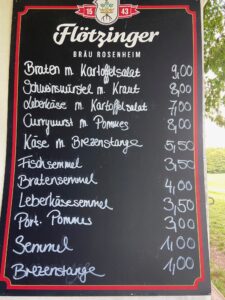 15 43
Flötzinger
BRÄU ROSENHEIM
Braten m. Kartoffelsalat 9,00
Schweinswürstel m. Kraut 8,00
Leberkäse m. Kartoffelsalat 7,00
Currywurst m. Pommes 8,00
Käse m. Brezenstange 5,50
Fischsemmel 3,50
Bratensemmel 4,00
Leberkäsesemmel 3,50
Port. Pommes 3,00
Semmel 1,00
Brezenstange 1,00